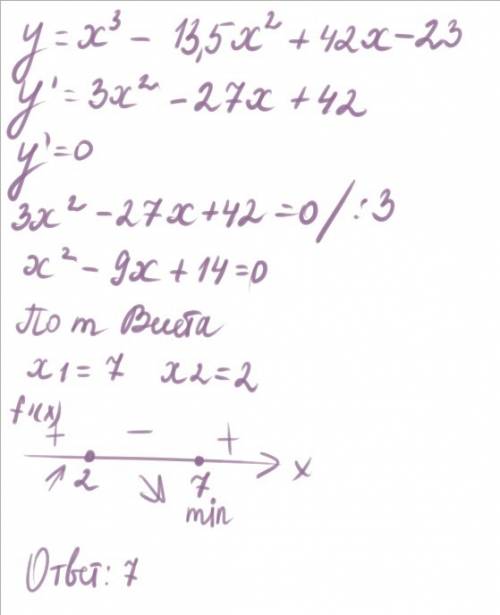 y = x³ - 13,5x² + 42x - 23
y' = 3x² - 27x + 42
y' = 0
3x² - 27x + 42 = 0 / : 3
x² - 9x + 14 = 0
По т Виета
x1 = 7 x2 = 2
f'(x)
+ - +
↗ 2 ↘ 7 x
min
Ответ: 7